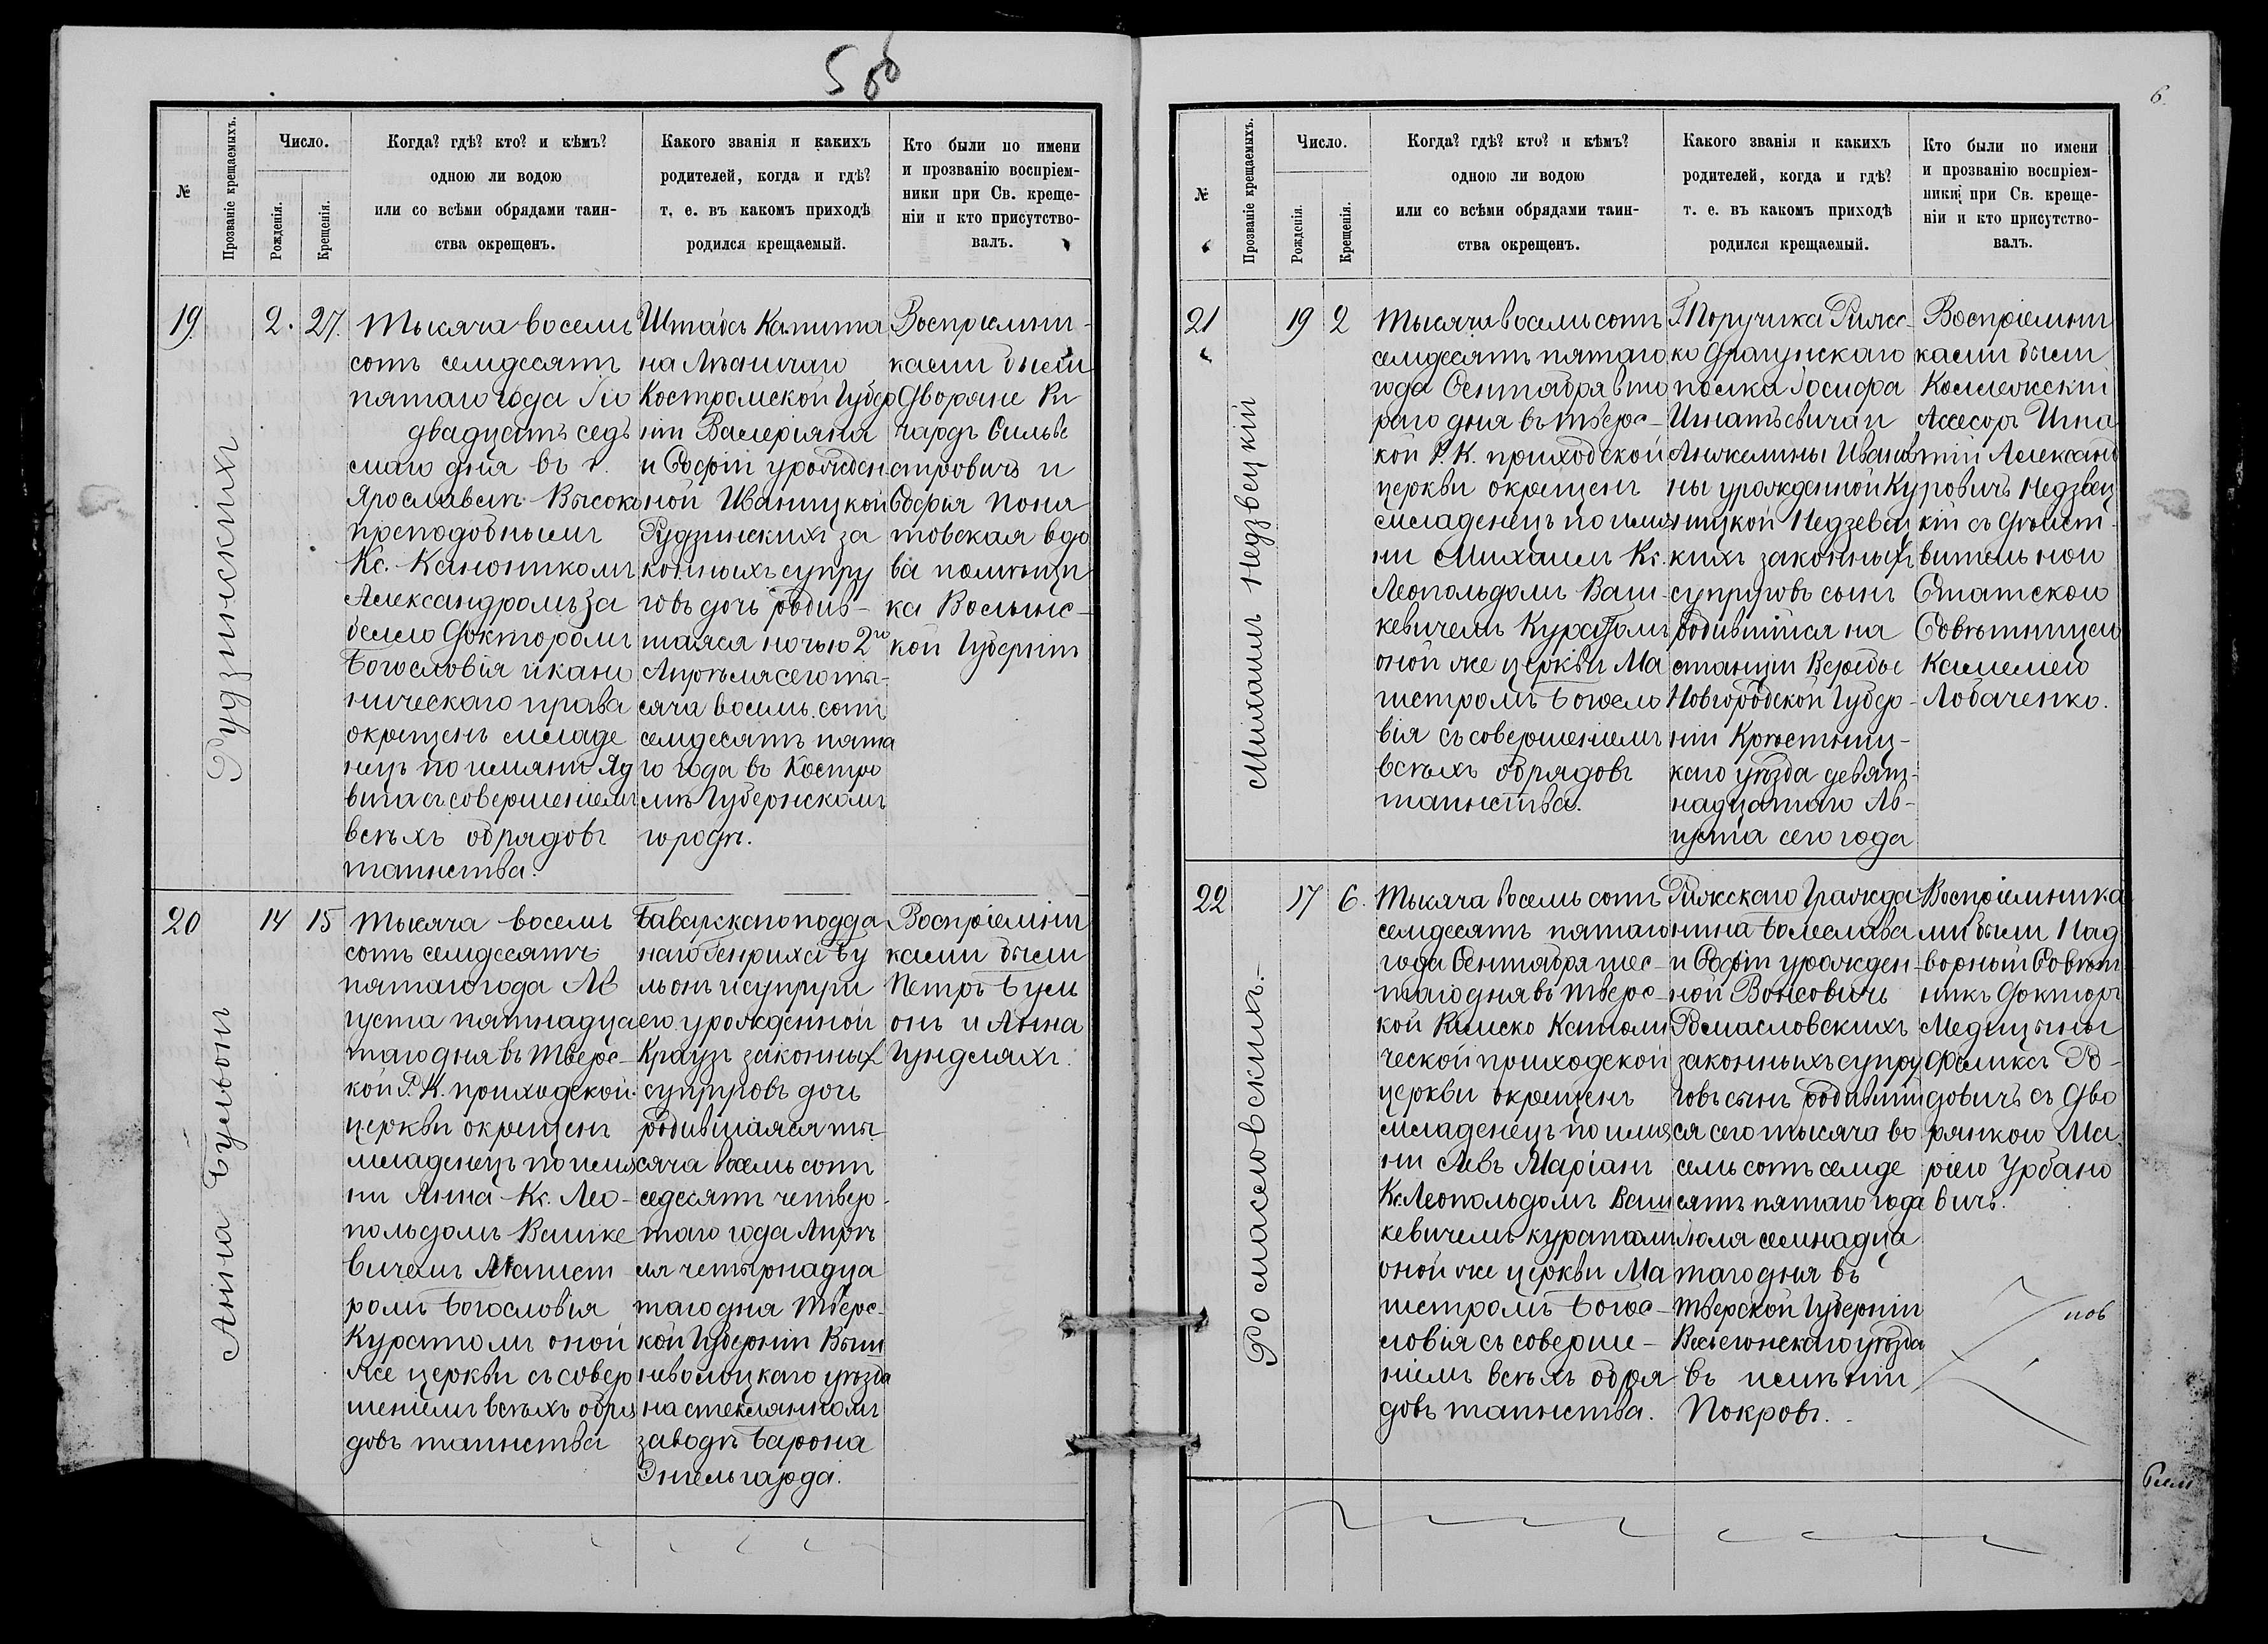 5 об
№
Прозваніе крещаемыхъ.
Число.
Рожденія.
Крещенія.
Когда? гдѣ? кто? и кѣмъ?
одною ли водою
или со всѣми обрядами таин-
ства окрещенъ.
Какого званія и какихъ
родителей, когда и гдѣ?
т. е. въ какомъ приходѣ
родился крещаемый.
Кто были по имени
и прозванію воспріем-
ники при Св. креще-
ніи и кто присутство-
валъ.
19.
Рудзинскихъ
2.
27.
Тысяча восемь
сотъ семдесятъ
пятаго года
двадцать седь
маго дня въ г.
Ярославлѣ Высоко
преподобнымъ
Кс. Каноникомъ
Александромъ За
белло Докторомъ
Богословія и кано
ническаго права
окрещенъ младе
нецъ по имяни Яд
вига съ совершеніемъ
всѣхъ обрядовъ
таинства.
Штабсъ Капита
на Лѣсничаго
Костромской Губер
ніи Валеріяна
и Софіи урожден
ной Иваницкой
Рудзинскихъ за
конныхъ супру
говъ дочь родив-
шаяся ночью 2го
Апрѣля сего ты-
сяча восемь сотъ
семдесятъ пята
го года въ Костро
мѣ Губернскомъ
городѣ.
Воспріемни-
ками были
Дворяне Ри
чардъ Сильве
стровичъ и
Софія Поня
товская вдо
ва помѣщи
ка Волынс-
кой Губерніи
20
Анна Бульонъ
14
15
Тысяча восемь
сотъ семдесятъ
пятаго года Ав
густа пятнадца
таго дня въ Тверс-
кой Р. К. приходской
церкви окрещенъ
младенецъ по имя
ни Анна Кс. Лео-
польдомъ Вашке
вичемъ Магист
ромъ Богословія
Куратомъ оной
же церкви съ совер
шеніемъ всѣхъ обря
довъ таинства
Баварскаго подда
наго Генриха Бу
льонъ и супруги
его урожденной
Краузъ законныхъ
супруговъ дочь
родившаяся ты
сяча восемь сотъ
седесятъ четвер-
таго года Апрѣ
ля четырнадца
таго дня Тверс-
кой Губерніи Выш
неволоцкаго уѣзда
на стеклянномъ
заводѣ Барона
Энгельгарда.
Воспріемни
ками были
Петръ Буль
онъ и Анна
Гундлахъ.
6.
№
Прозваніе крещаемыхъ.
Число.
Рожденія.
Крещенія.
Когда? гдѣ? кто? и кѣмъ?
одною ли водою
или со всѣми обрядами таин-
ства окрещенъ.
Какого званія и какихъ
родителей, когда и гдѣ?
т. е. въ какомъ приходѣ
родился крещаемый.
Кто были по имени
и прозванію воспріем-
ники при Св. креще-
ніи и кто присутство-
валъ.
21
Михаилъ Недзвецкій
19
2
Тысяча восемь сотъ
семдесятъ пятаго
года Сентября вто
раго дня въ Тверс-
кой Р. К. приходской
церкви окрещенъ
младенецъ по имя
ни Михаилъ Кс.
Леопольдомъ Ваш-
кевичемъ Куратомъ
оной же церкви Ма
гистромъ Богосло
вія съ совершеніемъ
всѣхъ обрядовъ
таинства.
Г. Поручика Рижс-
ко Драгунскаго
полка Іосифа
Игнатьевича и
Анжелины Иванов
ны урожденной Ку
ницкой Недзвец
кихъ законныхъ
супруговъ сынъ
родившійся на
станціи Веребье
Новгородской Губер-
ніи Крѣстниц-
каго уѣзда девят-
надцатаго Ав-
густа сего года
Воспріемни
ками были
Коллежскій
Ассесоръ Игна
тій Александ
ровичъ Недзвец
кій съ Дѣйст-
вительной
Статской
Совѣтницей
Камиліею
Лобаченко.
22
Ромасловскихъ.-
17
6.
Тысяча восемь сотъ
семдесятъ пятаго
года Сентября шес-
таго дня въ Тверс-
кой Римско Католи
ческой приходской
церкви окрещенъ
младенецъ по имя
ни Левъ Маріанъ
Кс. Леопольдомъ Ваш
кевичемъ куратомъ
оной же церкви Ма
гистромъ Богос-
ловія съ соверше-
ніемъ всѣхъ обря
довъ таинства.
Рижскаго Гражда
нина Болеслава
и Софіи урожден-
ной Вонсовичъ
Ромасловскихъ
законныхъ супру
говъ сынъ родивший
ся сего тысяча во
семь сотъ семде
сятъ пятаго года
Іюля семнадца
таго дня въ
Тверской Губерніи
Весьегонскаго уѣзда
въ имѣніи
Покровъ.
Воспріемника
ми были Над
ворный Совѣт
никъ Докторъ
Медицины
Феликсъ Ро-
довичъ съ Дво
рянкою Ма
ріею Урбано
вичъ.
нов